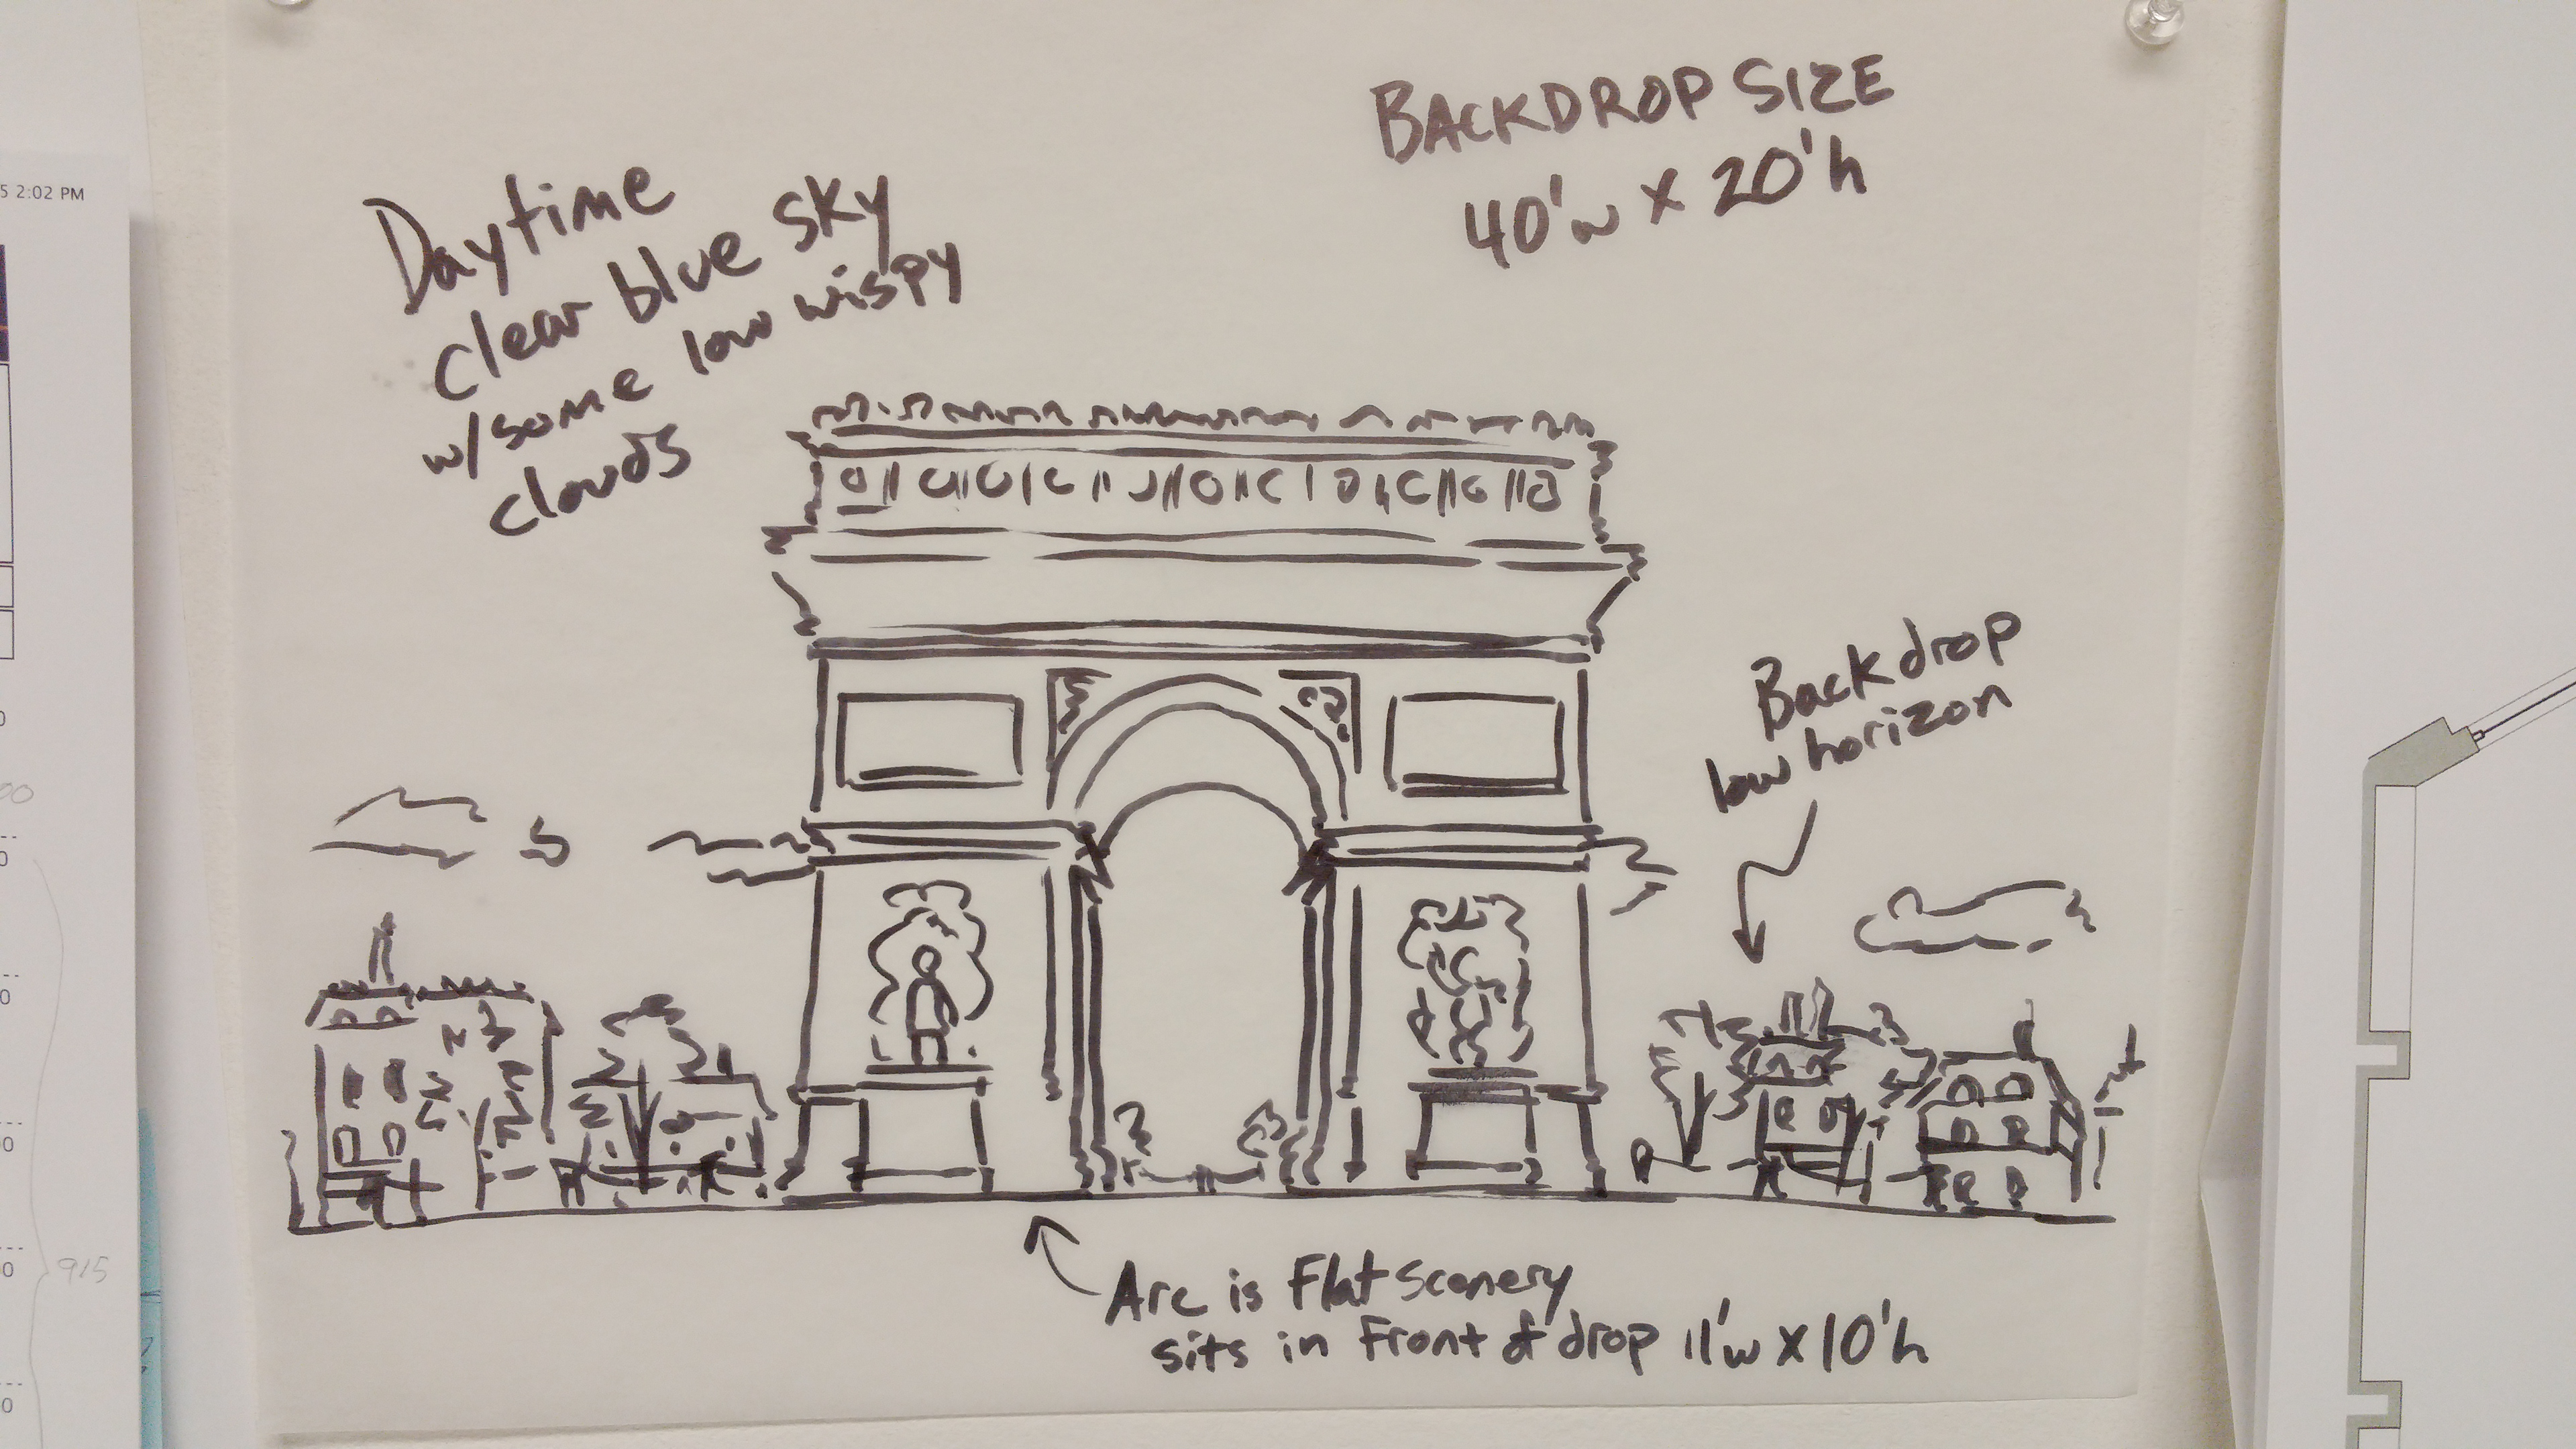 5 2:02 PM
Daytime
clear blue sky
w/some low wispy
clouds
BACKDROP SIZE
40'w x 20'h
Backdrop
low horizon
Arc is Flat scenery
sits in Front of drop 11'w x 10'h
915